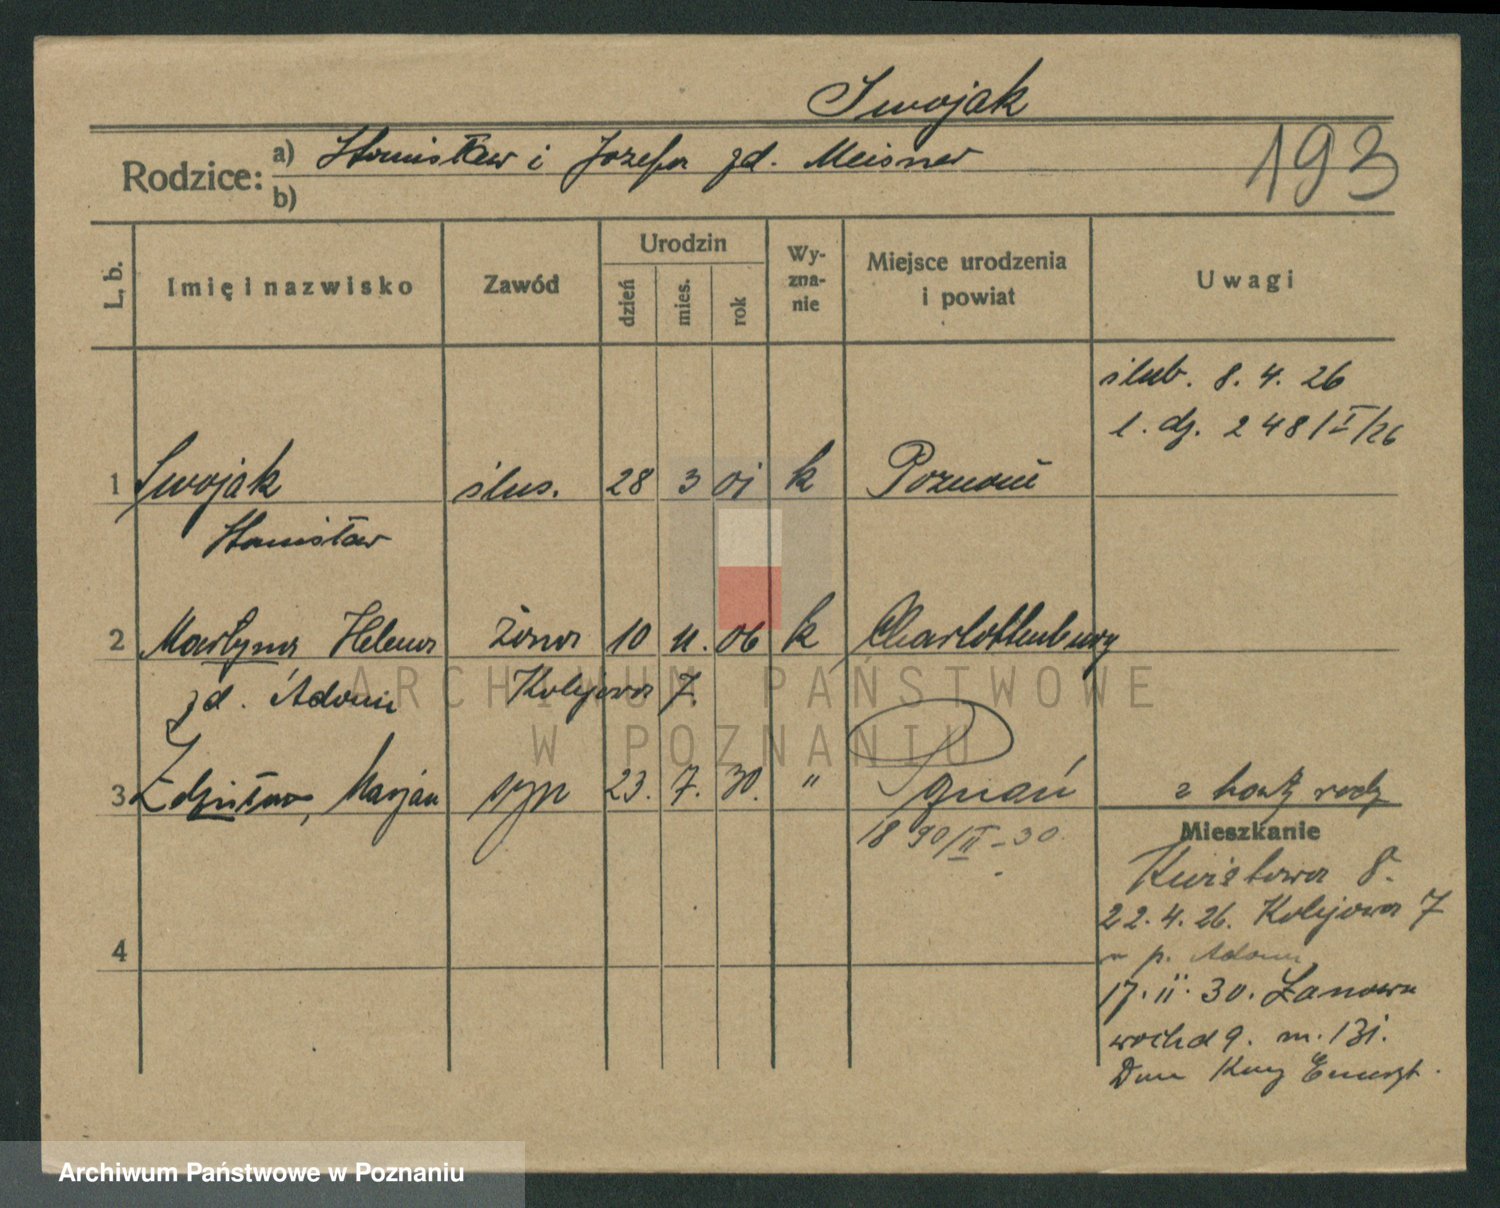 Swojak
Rodzice: a) Stanisław i Jozefa zd. Meisner
b)
193
L. b.
Imię i nazwisko
Zawód
Urodzin
dzień
mies.
rok
Wy-
zna-
nie
Miejsce urodzenia
i powiat
Uwagi
ślub. 8. 4. 26
l. dz. 248/I/26
1 Swojak ślus. 28 3 01 k Poznań
Stanisław
2 Martyna Helena żona 10 11. 06 k Charlottenburg
zd. Adam Kolejowa 7.
3 Zdzisław, Marjan syn 23. 7. 30. " Poznań
z karty rodz
1890/II-30.
Mieszkanie
8.
22. 4. 26. Kolejowa 7
4
p. Adam
17. 11. 30. Łanowa
wschd 9. m. 131.
Dom
ARCHIWUM PAŃSTWOWE
W POZNANIU
Archiwum Państwowe w Poznaniu